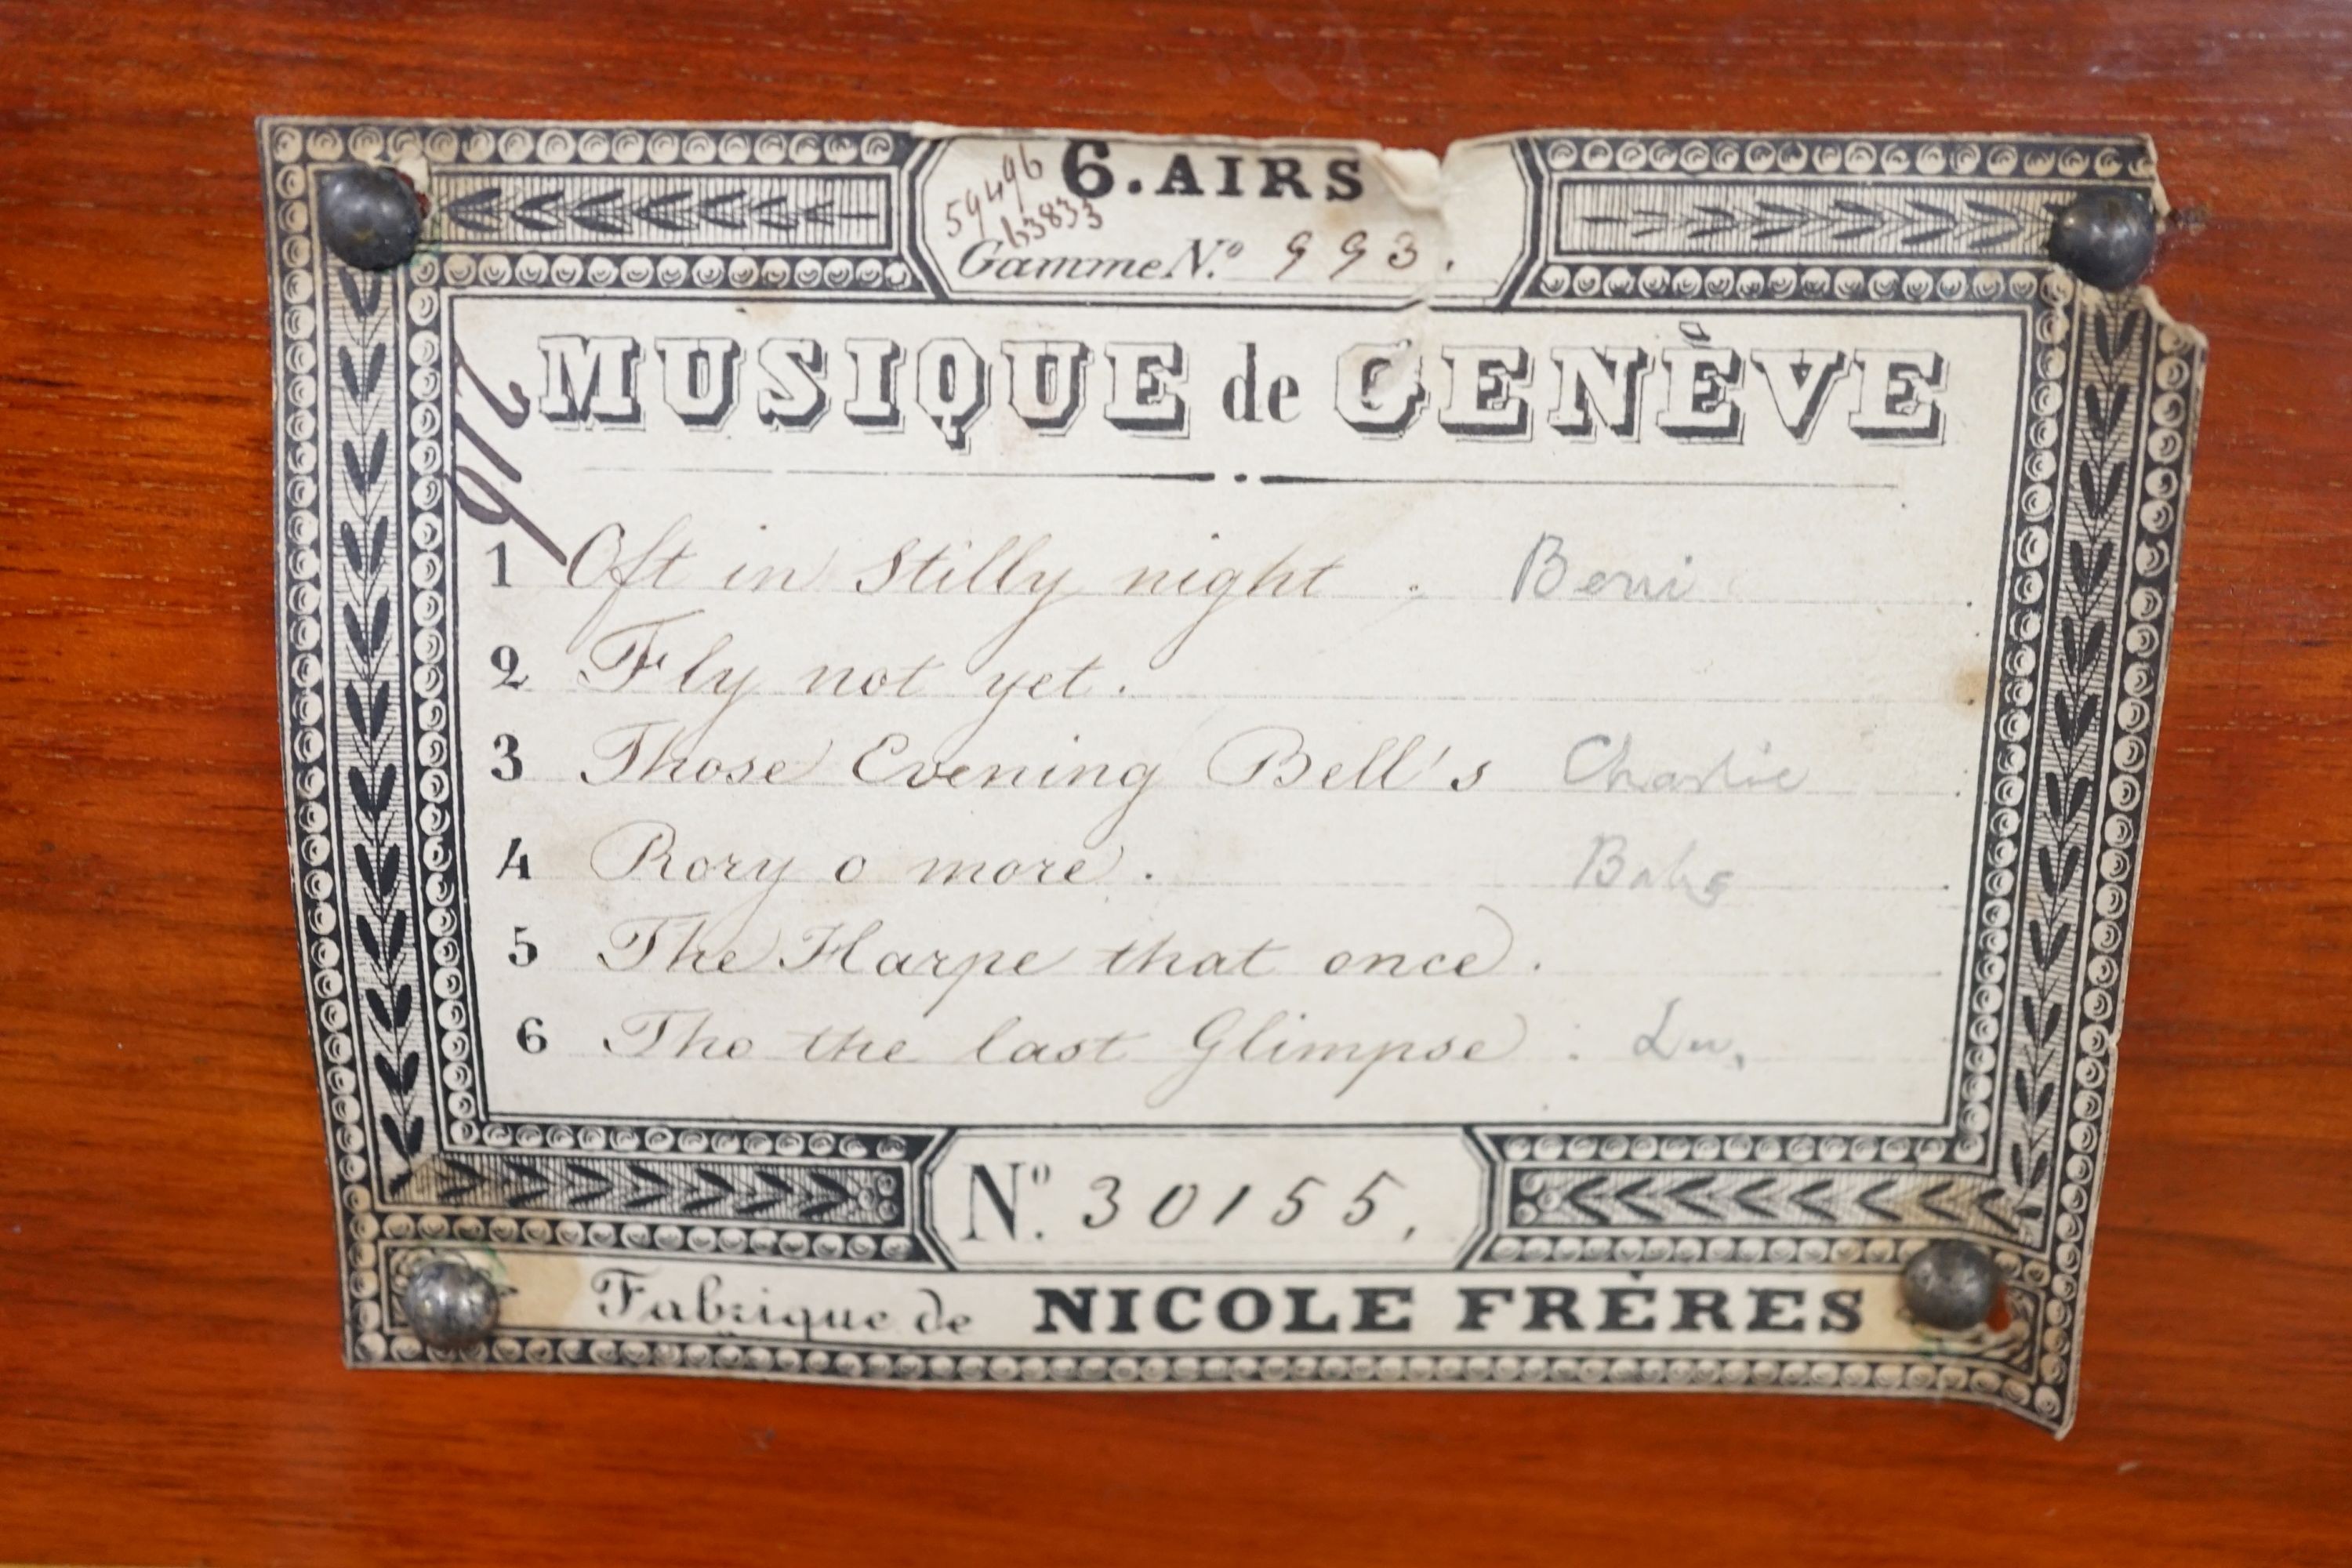 6. AIRS
59496
63833
Gamme N.º 993.
MUSIQUE de GENÈVE
1 Oft in Stilly night.
2 Fly not yet.
3 Those Evening Bell's Charlie
4 Rory o more. Babs
5 The Harpe that once.
6 Tho the last Glimpse : Lu.
Nº. 30155.
Fabrique de NICOLE FRÈRES